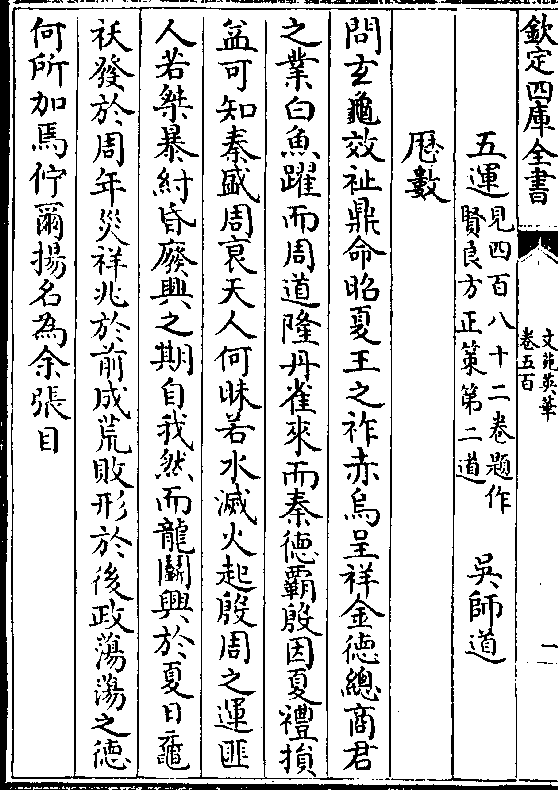 欽定四庫全書
文苑英華
卷五百
一
五運
見四百八十二卷題作
賢良方正策第二道
吳師道
厯數
問玄龜效祉鼎命昭夏王之祚赤烏呈祥金徳總商君
之業白魚躍而周道隆丹雀來而秦徳霸殷因夏禮損
益可知秦盛周衰天人何昧若水滅火起殷周之運匪
人若桀暴紂昏廢興之期自我然而龍鬬興於夏日龜
祅發於周年災祥兆於前成荒敗形於後政蕩蕩之徳
何所加焉佇爾揚名為余張目